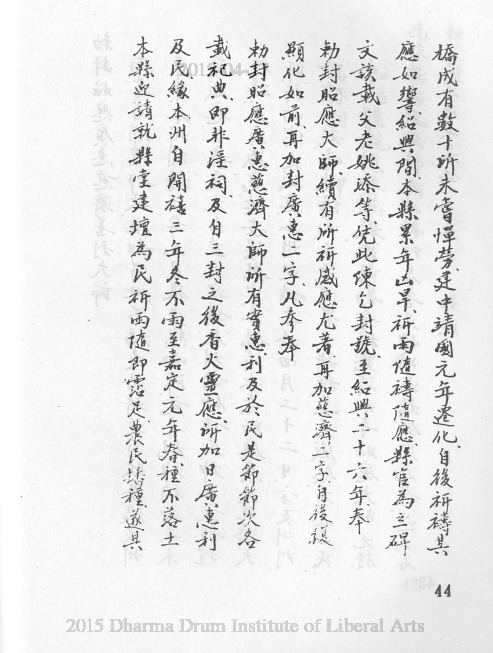 橋成有數十所未嘗憚勞建中靖國元年遷化自後祈禱其
應如響紹興間本縣累年山旱祈雨隨禱隨應縣官為立碑
文該載父老姚添等凭此陳乞封號至紹興二十六年奉
勅封昭應大師續有所祈感應尤著再加慈濟二字自後復
顯化如前再加封廣惠二字凡叁奉
勅封昭應廣惠慈濟大師所有實惠利及於民是節節次各
載祀典即非淫祠及自三封之後香火靈應所加日廣惠利
及民緣本州自開禧三年冬不雨至嘉定元年春種不落土
本縣迎請就縣堂建壇為民祈雨隨即霑足農民蒔種遂具
44
2015 Dharma Drum Institute of Liberal Arts